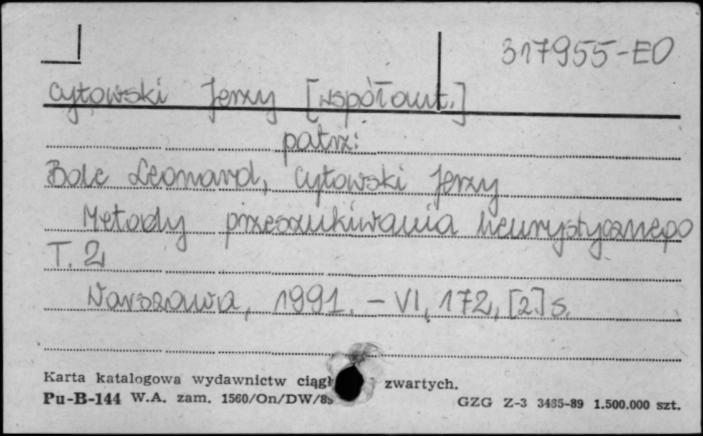 317955-EO
Cytowski Jerzy [współaut.]
patrz:
Bolc Leonard, Cytowski Jerzy
Metody przeszukiwania heurystycznego
T. 2
Warszawa, 1991. - VI, 172, [2] s.
Karta katalogowa wydawnictw ciągł zwartych.
Pu-B-144 W.A. zam. 1560/On/DW/89 GZG Z-3 3435-89 1.500.000 szt.